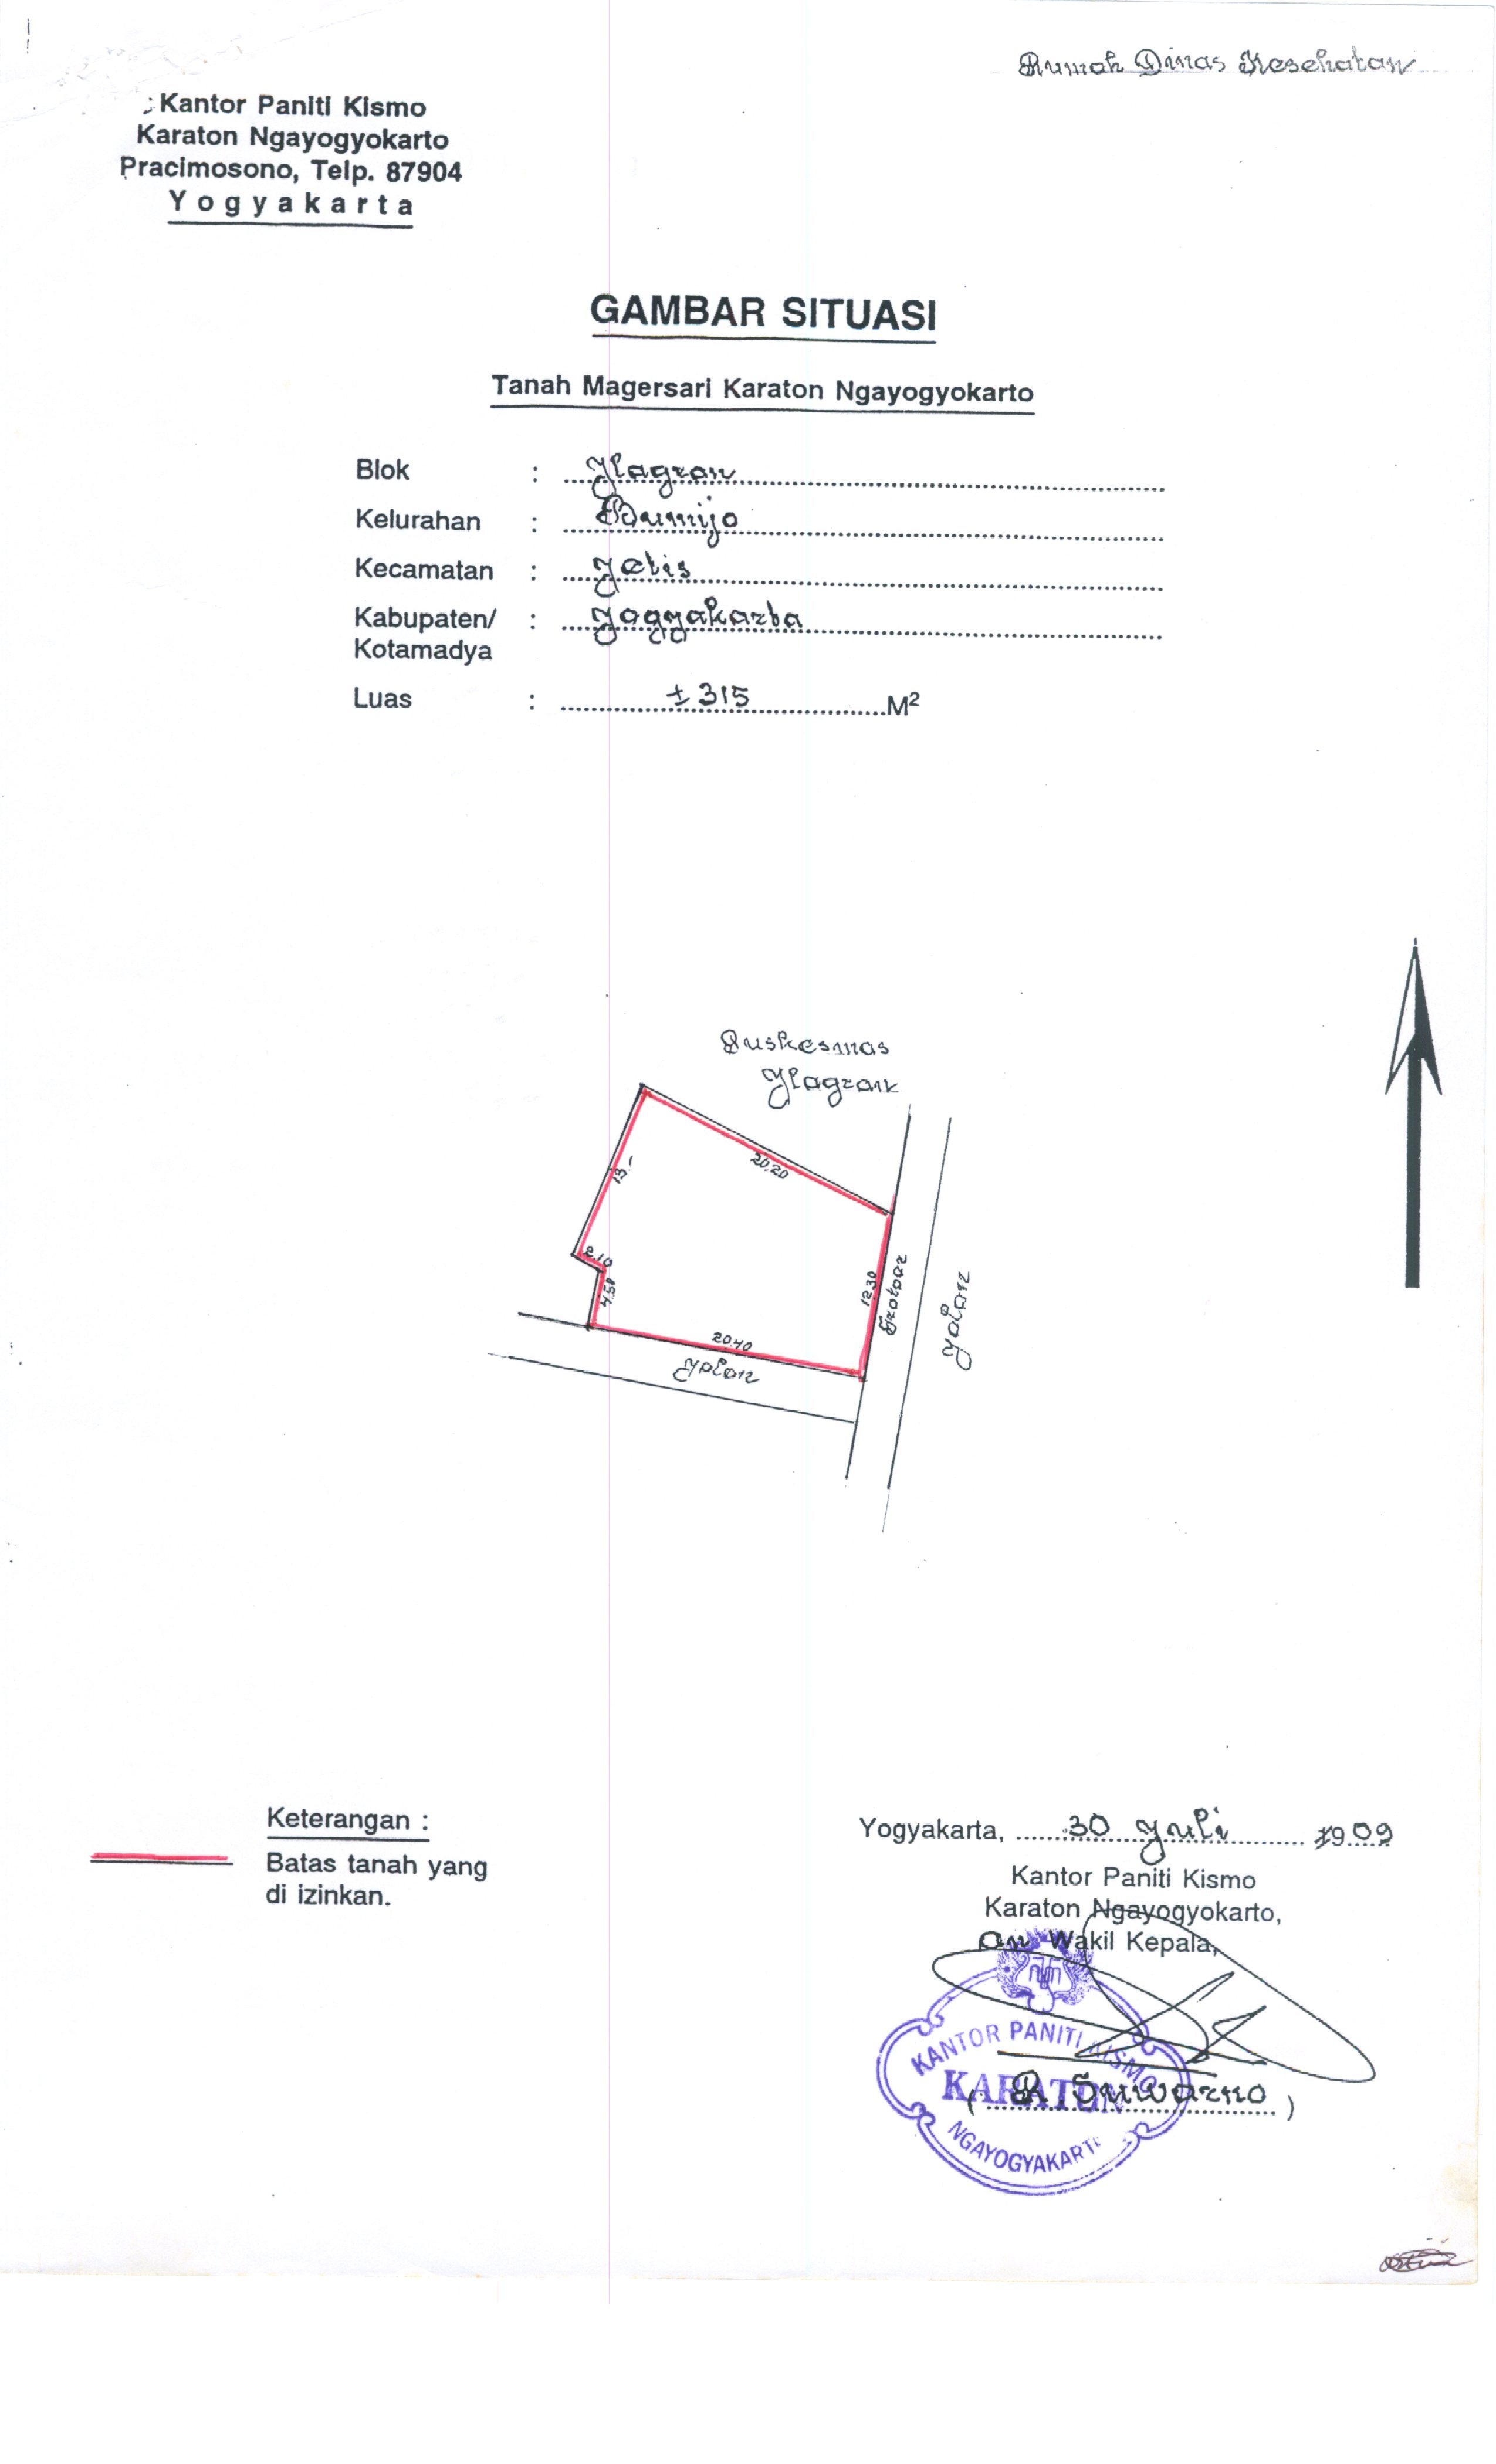 Rumah Dinas Kesehatan
Kantor Paniti Kismo
Karaton Ngayogyokarto
Pracimosono, Telp. 87904
Yogyakarta
GAMBAR SITUASI
Tanah Magersari Karaton Ngayogyokarto
Blok : Jlagran
Kelurahan : Bumijo
Kecamatan : Jetis
Kabupaten/ : Yogyakarta
Kotamadya
Luas : ± 315 M²
Puskesmas
Jlagran
20,20
13.-
2.10
4.50
12.30
Trotoar
Jalan
20.40
Jalan
Keterangan :
Batas tanah yang
di izinkan.
Yogyakarta, 30 Juli 1909
Kantor Paniti Kismo
Karaton Ngayogyokarto,
an Wakil Kepala,
KANTOR PANITI KISMO
KARATON
NGAYOGYAKARTO
( R Suwarno )